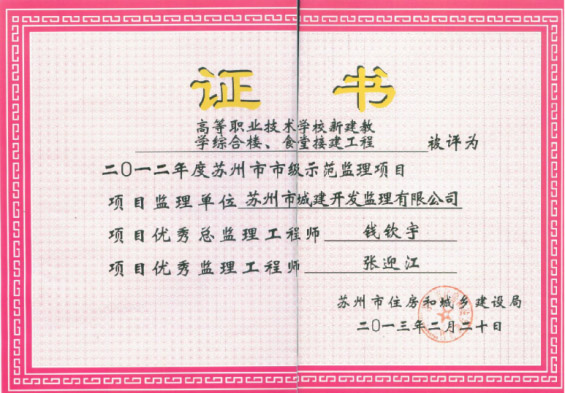 证书
高等职业技术学校新建教
学综合楼、食堂接建工程 被评为
二〇一二年度苏州市市级示范监理项目
项目监理单位 苏州市城建开发监理有限公司
项目优秀总监理工程师 钱钦宇
项目优秀监理工程师 张迎江
苏州市住房和城乡建设局
二〇一三年二月二十日